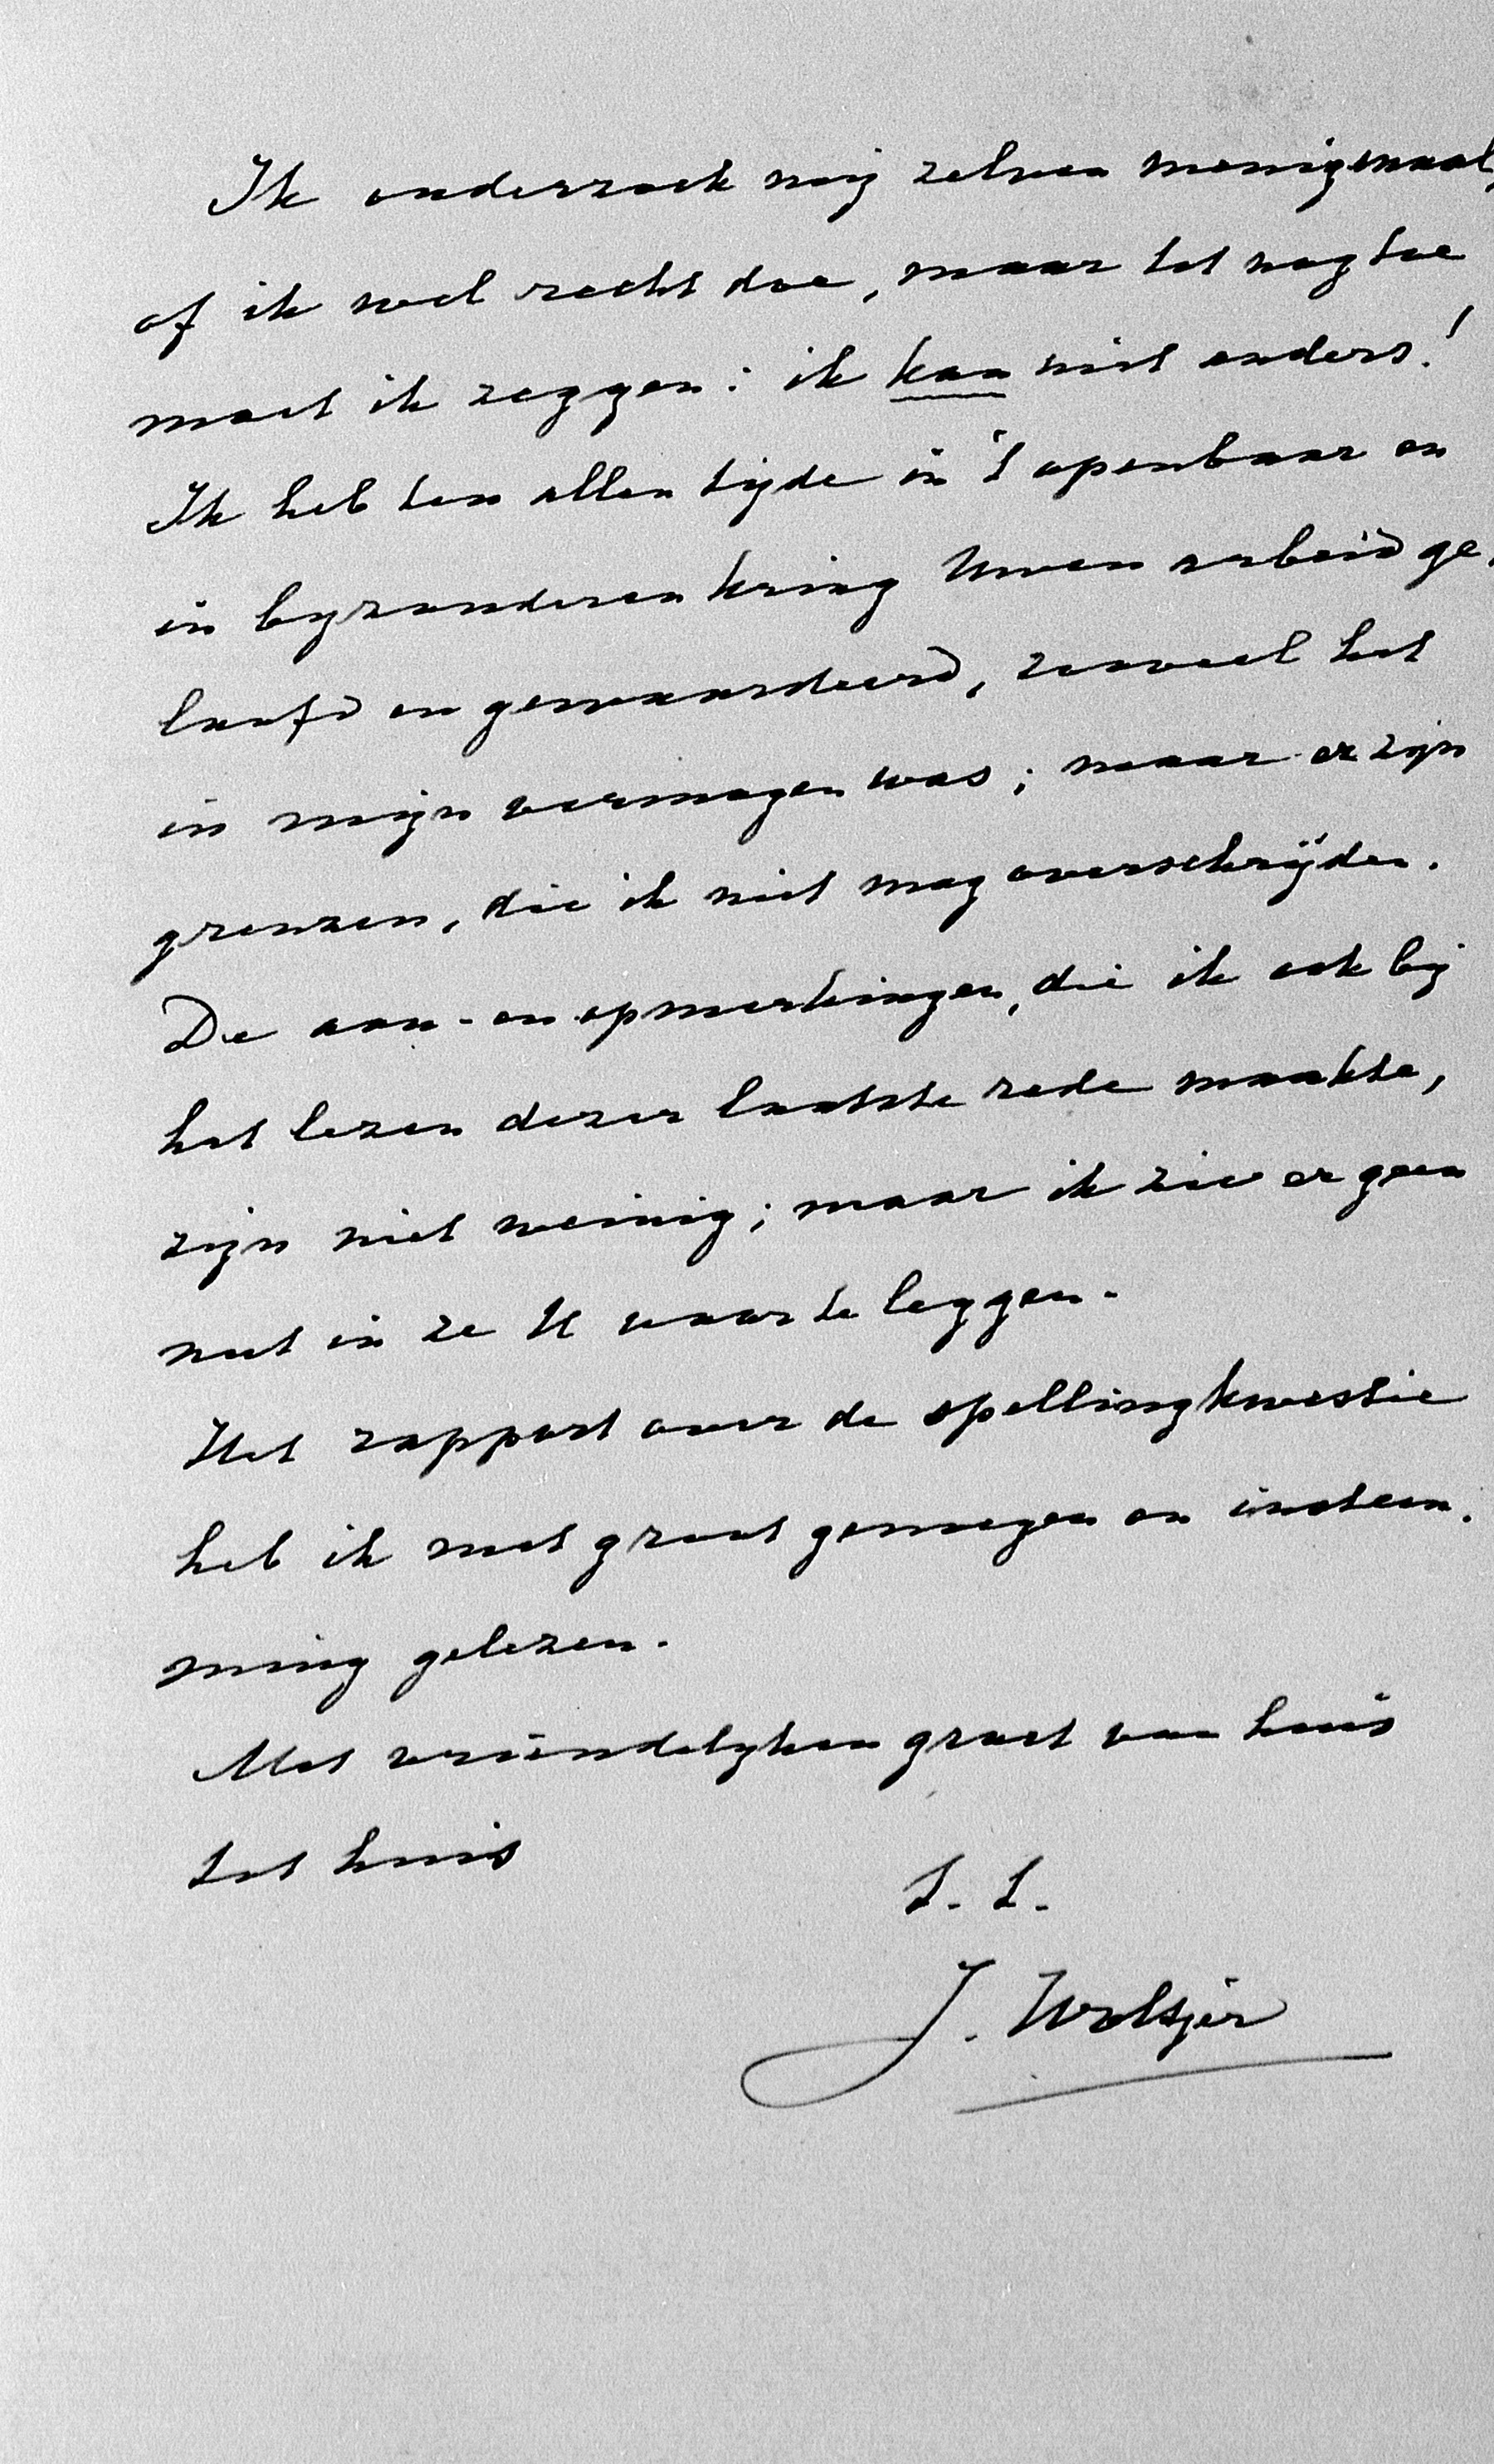 Ik onderzoek mij zelven menigmaal,
of ik wel recht doe, maar tot nog toe
moet ik zeggen: ik kan niet anders!
Ik heb ten allen tijde in 't openbaar en
in byzonderen kring Uwen arbeid ge-
loofd en gewaardeerd, zooveel het
in mijn vermogen was; maar er zijn
grenzen, die ik niet mag overschrijden.
De aan- en opmerkingen, die ik ook bij
het lezen dezer laatste rede maakte,
zijn niet weinig; maar ik zie er geen
nut in ze U voor te leggen.
Het rapport over de spellingkwestie
heb ik met groot genoegen en instem-
ming gelezen.
Met vriendelyken groet van huis
tot huis
t. t.
J. Woltjer